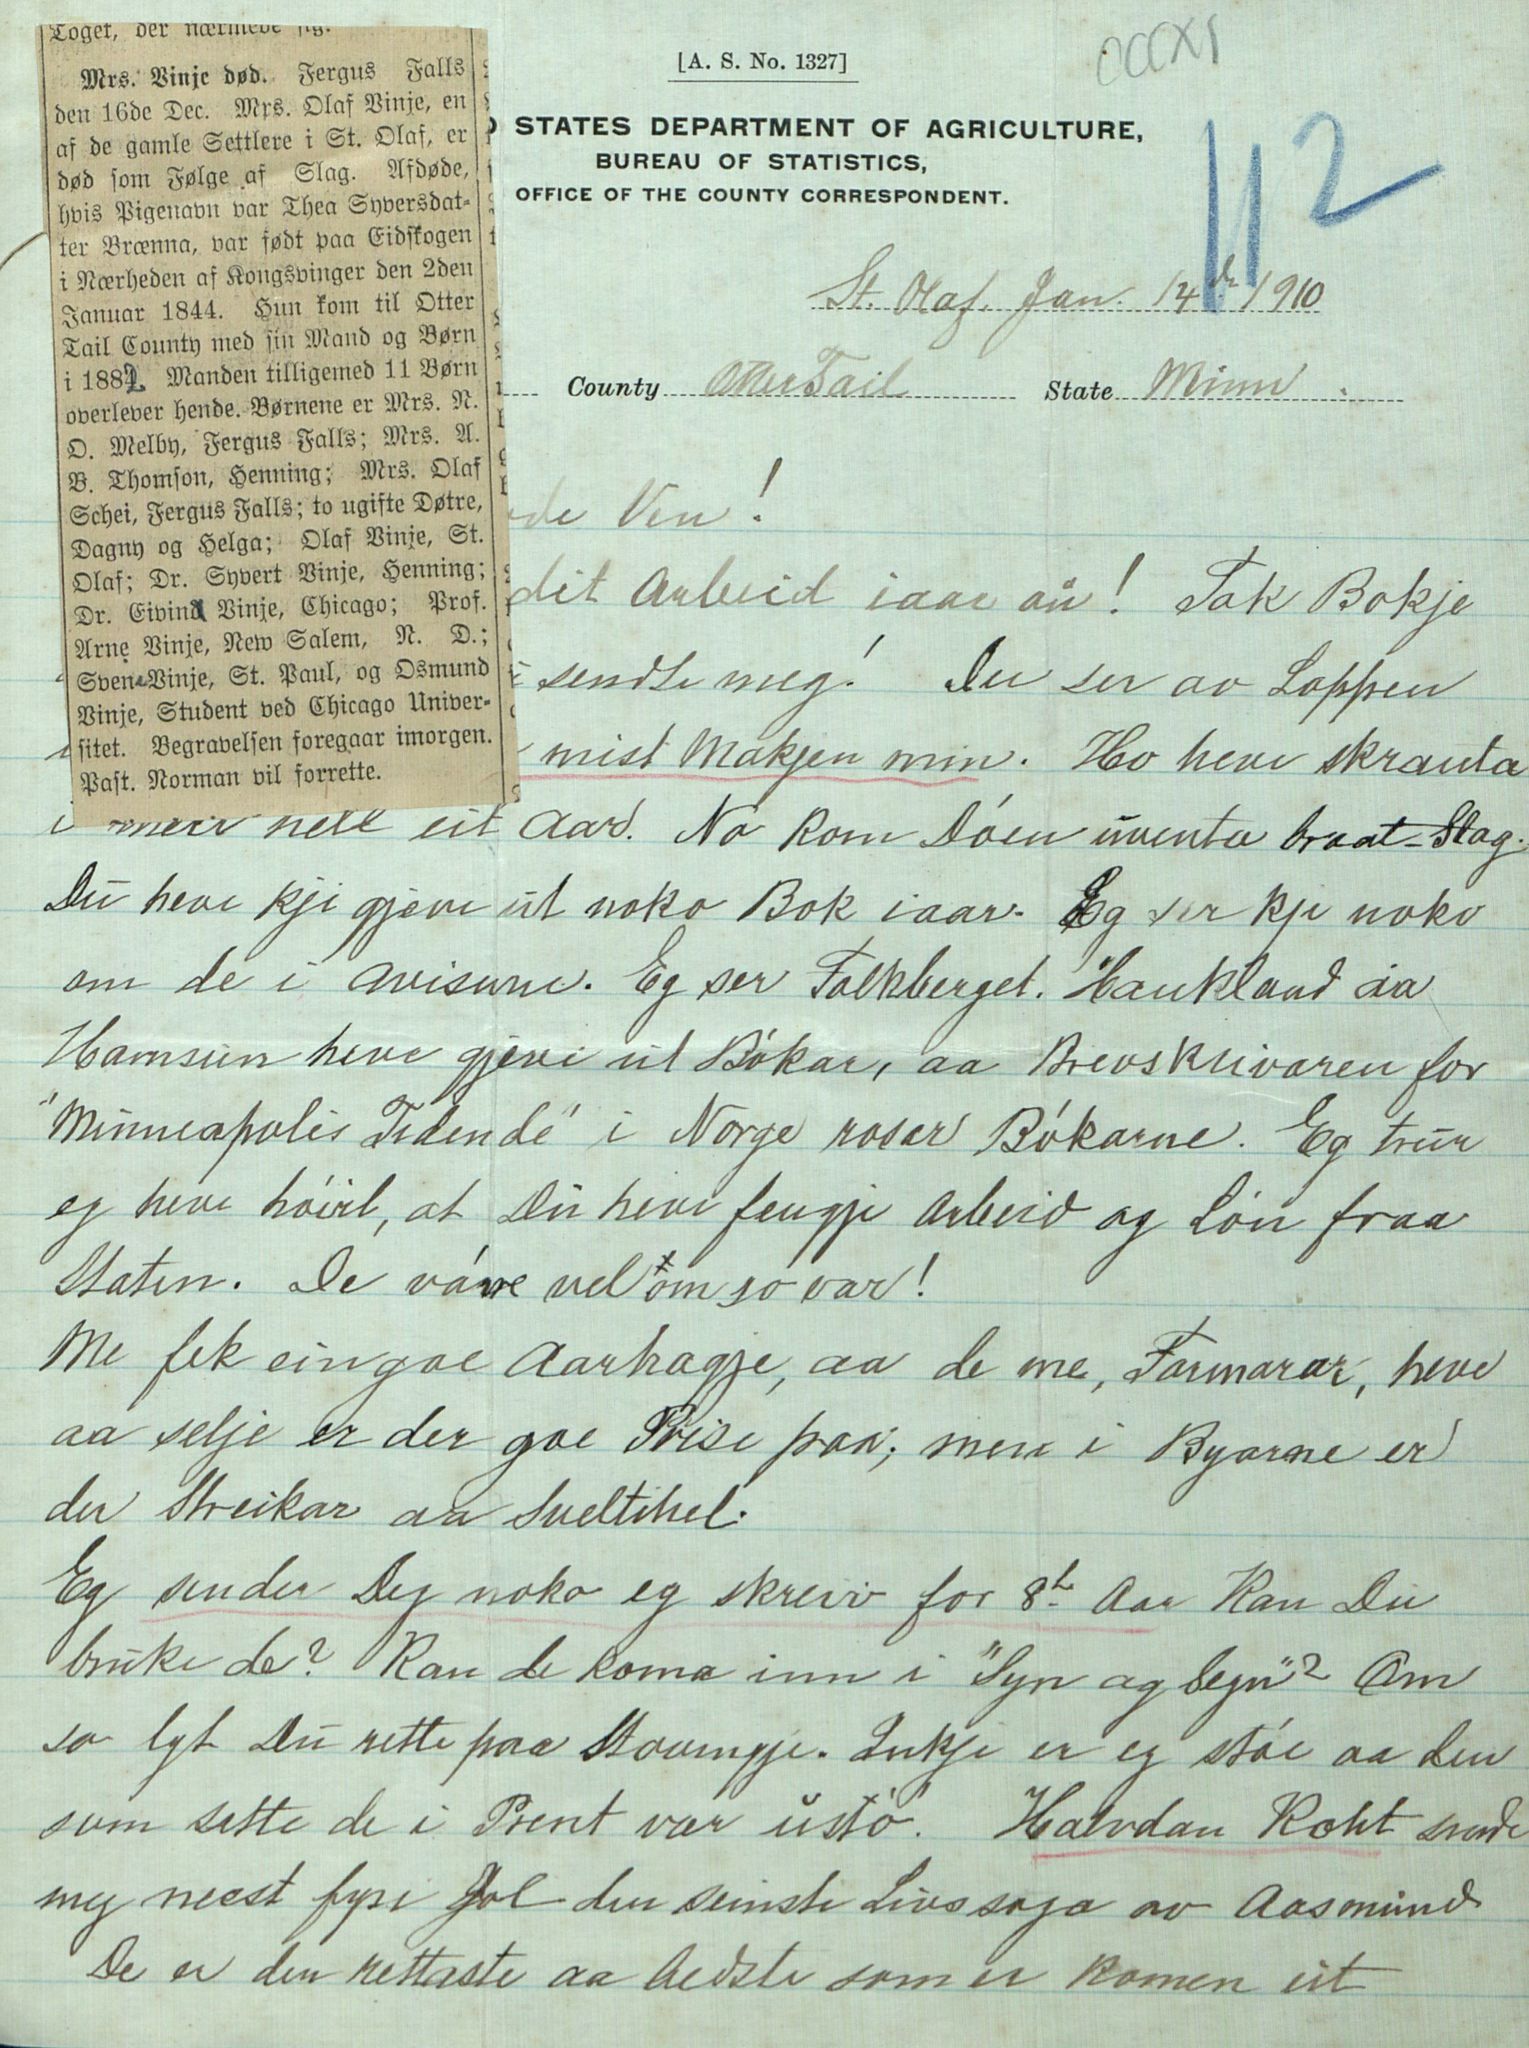 Toget, der nærmede sig.
Mrs. Vinje død. Fergus Falls
den 16de Dec. Mrs. Olaf Vinje, en
af de gamle Settlere i St. Olaf, er
død som Følge af Slag. Afdøde,
hvis Pigenavn var Thea Syversdat-
ter Brænna, var født paa Eidskogen
i Nærheden af Kongsvinger den 2den
Januar 1844. Hun kom til Otter
Tail County med sin Mand og Børn
i 1882. Manden tilligemed 11 Børn
overlever hende. Børnene er Mrs. N.
O. Melby, Fergus Falls; Mrs. A.
B. Thomson, Henning; Mrs. Olaf
Schei, Fergus Falls; to ugifte Døtre,
Dagny og Helga; Olaf Vinje, St.
Olaf; Dr. Syvert Vinje, Henning;
Dr. Eivind Vinje, Chicago; Prof.
Arne Vinje, New Salem, N. D.;
Sven Vinje, St. Paul, og Osmund
Vinje, Student ved Chicago Univer-
sitet. Begravelsen foregaar imorgen.
Past. Norman vil forrette.
[A. S. No. 1327]
112
STATES DEPARTMENT OF AGRICULTURE,
BUREAU OF STATISTICS,
OFFICE OF THE COUNTY CORRESPONDENT.
St. Olaf. Jan. 14de 1910
County OtterTail State Minn.
Ven!
dit Arbeid iaar au! Tak Bokje
sendte meg! Du ser av Lappen
mist Makjen min. Ho heve skranta
i meir hell eit Aar. No kom Döen uventa braat-Slag.
Du heve kji gjeve ut noko Bok iaar. Eg ser kje noko
om de i Avisune. Eg ser Falkberget. Haukland aa
Hamsun heve gjeve ut Bökar, aa Brevskrivaren for
"Minneapolis Tidende" i Norge rosar Bökarne. Eg trur
eg heve höirt, at Du heve fengje Arbeid og Lön fraa
Staten. De väre vel om so var!
Me fek ein goe Aarhagje, aa de me, Farmarar, heve
aa selje er der goe Prise paa; men i Byarne er
der Streikar aa Sveltihel.
Eg sender Deg noko eg skreiv for 8t. Aar Kan Du
bruke de? Kan de koma inn i "Syn og Segn"? Om
so lyt Du rette paa Stavingje. Inkje er eg stöe aa den
som sette de i Prent var ustö. Halvdan Koht sende
meg næst fyre Jol den seinste Livssoga av Aasmund
De er den rettaste aa bedste som er komen ut